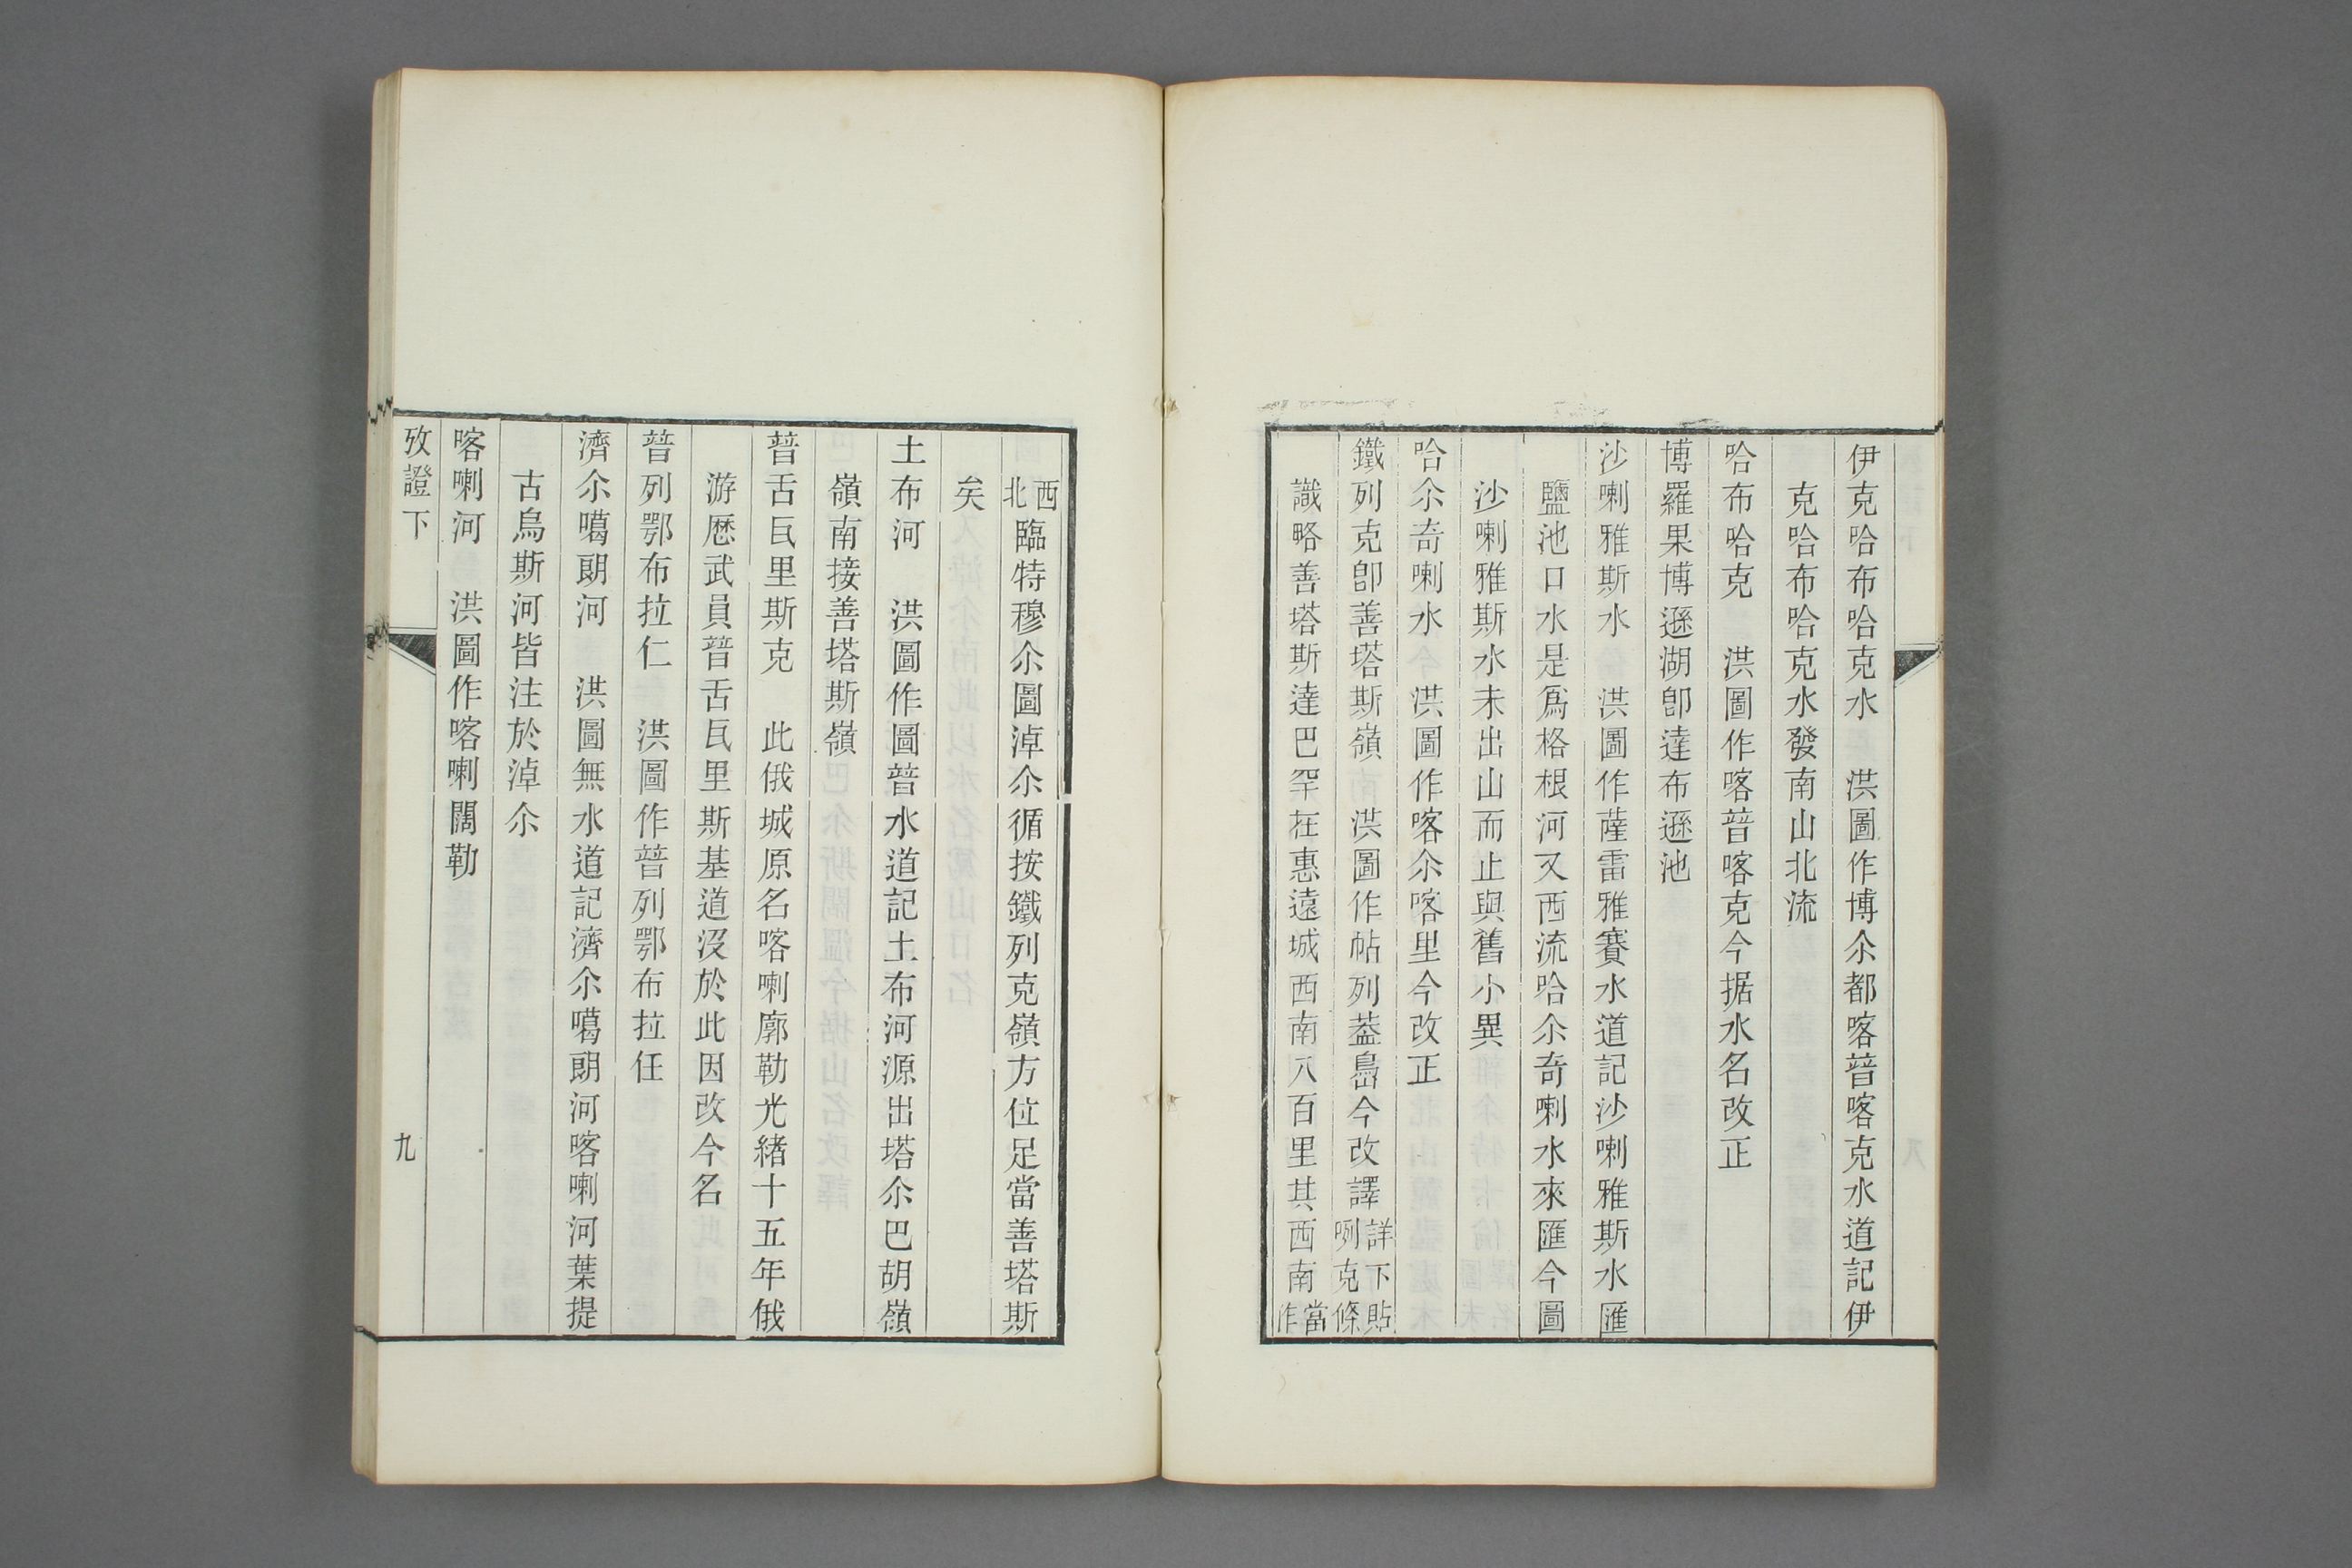 伊克哈布哈克水　洪圖作博尒都喀普喀克水道記伊
克哈布哈克水發南山北流
哈布哈克　洪圖作喀普喀克今据水名改正
博羅果博遜湖卽達布遜池
沙喇雅斯水　洪圖作薩雷雅賽水道記沙喇雅斯水匯
鹽池口水是爲格根河又西流哈尒奇喇水來匯今圖
沙喇雅斯水未出山而止與舊小異
哈尒奇喇水　洪圖作喀尒喀里今改正
鐵列克卽善塔斯嶺　洪圖作帖列葢島今改譯詳下貼咧克條
識略善塔斯達巴罕在惠遠城西南八百里其西南當作
西北臨特穆尒圖淖尒循按鐵列克嶺方位足當善塔斯
矣
土布河　洪圖作圖普水道記土布河源出塔尒巴胡嶺
嶺南接善塔斯嶺
普舌瓦里斯克　此俄城原名喀喇廓勒光緒十五年俄
游歷武員普舌瓦里斯基道沒於此因改今名
普列鄂布拉仁　洪圖作普列鄂布拉任
濟尒噶朗河　洪圖無水道記濟尒噶朗河喀喇河葉提
古烏斯河皆注於淖尒
喀喇河　洪圖作喀喇闊勒
攷證下
九